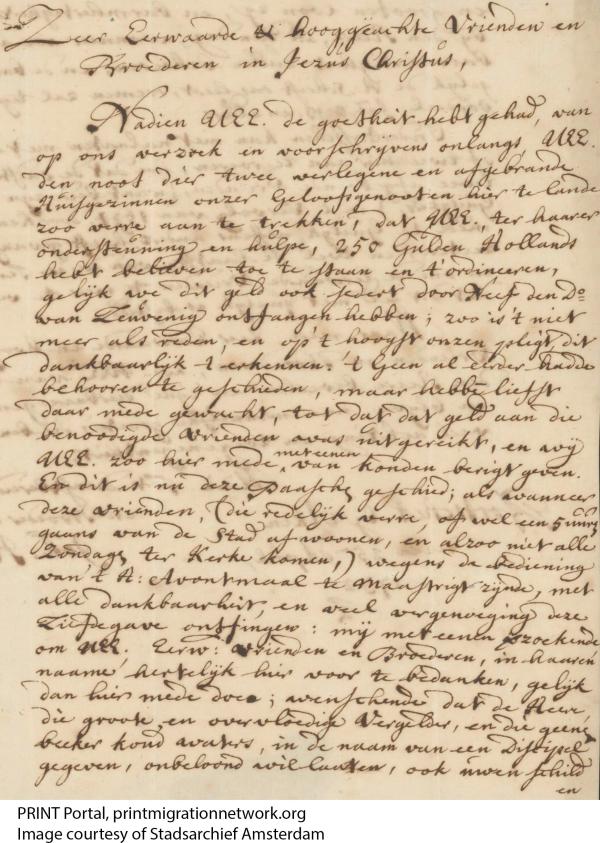 Zeer Eerwaarde & hooggeachte Vrienden en
Broederen in Jezus Christus,
Nadien ULL. de goetheit hebt gehad, van
op ons verzoek en voorschrijvens onlangs, ULL.
den noot dier twee verlegene en afgebrande
Huisgezinnen onzer Geloofsgenooten hier te lande
zoo verre aan te trekken, dat ULL. ter haarer
ondersteuning en hulpe, 250 Gulden Hollands
hebt believen toe te staan en t'ordineeren,
gelijk we dit geld ook sedert door Neef den Do
van Leuvenig ontfangen hebben; zoo is 't niet
meer als reden, en op 't hoogst onzen pligt, dit
dankbaarlijk t' erkennen. 't Geen al eerder hadde
behooren te geschieden, maar hebbe liefst
daar mede gewacht, tot dat dat geld aan die
benoodigde vrienden was uitgereikt, en wij
ULL. zoo hier mede meteenen van konden berigt geven.
En dit is nu deze Paasche geschied; als wanneer
deze vrienden, (die redelijk verre, of wel een 5 uuren
gaans van de Stad af woonen, en alzoo niet alle
Zondags ter Kerke komen,) wegens de bediening
van 't H: Avontmaal te Maastrigt zijnde, met
alle dankbaarheit, en veel vergenoeging deze
Liefdegave ontfingen: mij meteenen verzoekende
om ULL. Eerw: vrienden en Broederen, in haaren
naame hertelijk hier voor te bedanken, gelijk
dan hier mede doe; wenschende dat de Heere,
die groote en overvloedige Vergelder, en die geene
beeker koud waters, in de naam van een Discipel
gegeven, onbeloond wil laaten, ook uwen schild
en
PRINT Portal, printmigrationnetwork.org
Image courtesy of Stadsarchief Amsterdam